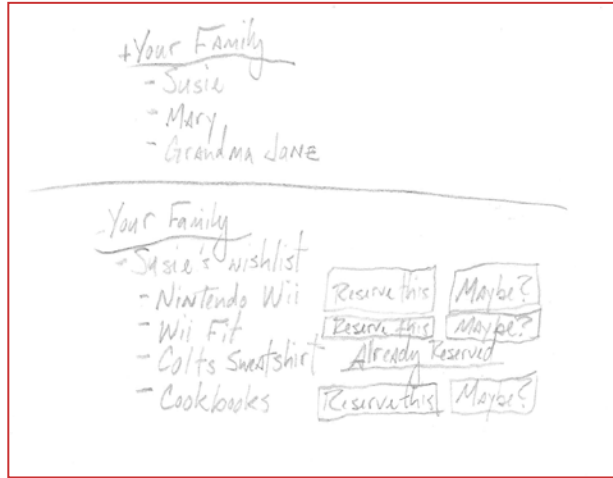 +Your Family
- Susie
- Mary
- Grandma Jane
-Your Family
- Susie's wishlist
- Nintendo Wii Reserve this Maybe?
- Wii Fit Reserve this Maybe?
- Colts Sweatshirt Already Reserved
- Cookbooks Reserve this Maybe?